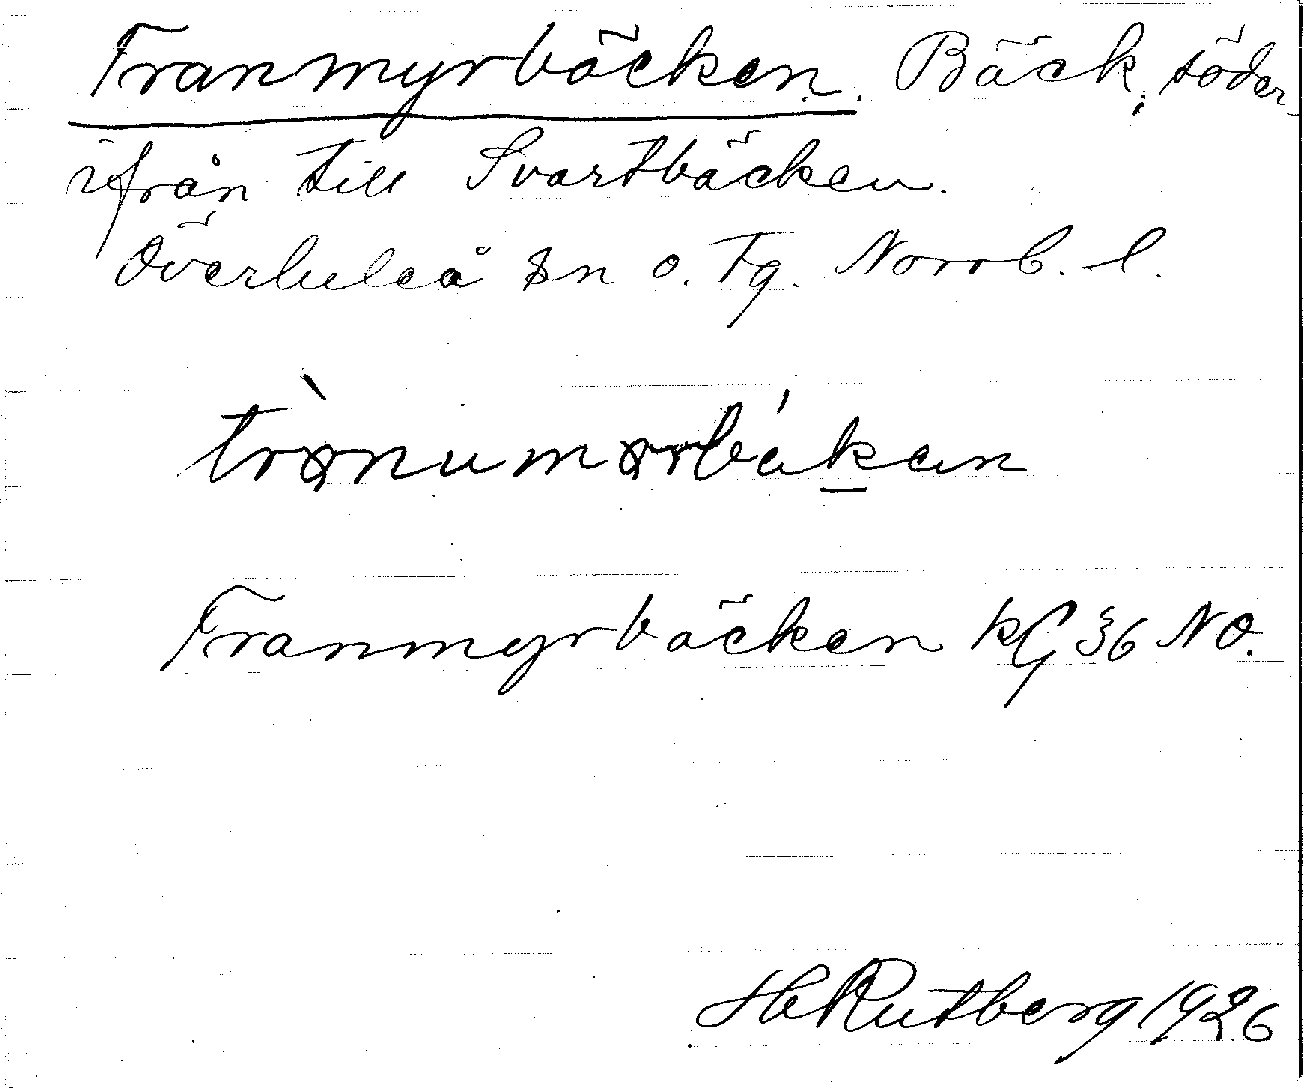 Tranmyrbäcken. Bäck, söder
ifrån till Svartbäcken.
Överluleå sn o. Tg. Norrb. l.
trànumɷrbákan
Tranmyrbäcken kG 36 NO.
H Rutberg 1926